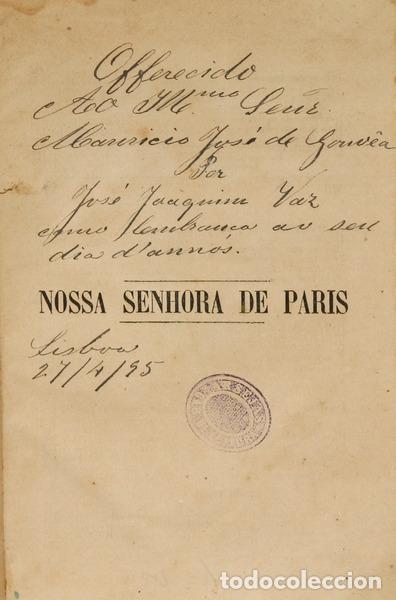 Offerecido
Ao Illmo Senr.
Mauricio José de Gouvêa
Por
José Joaquim Vaz
como lembrança ao seu
dia d'annos.
NOSSA SENHORA DE PARIS
Lisboa
27/4/95
todocoleccion